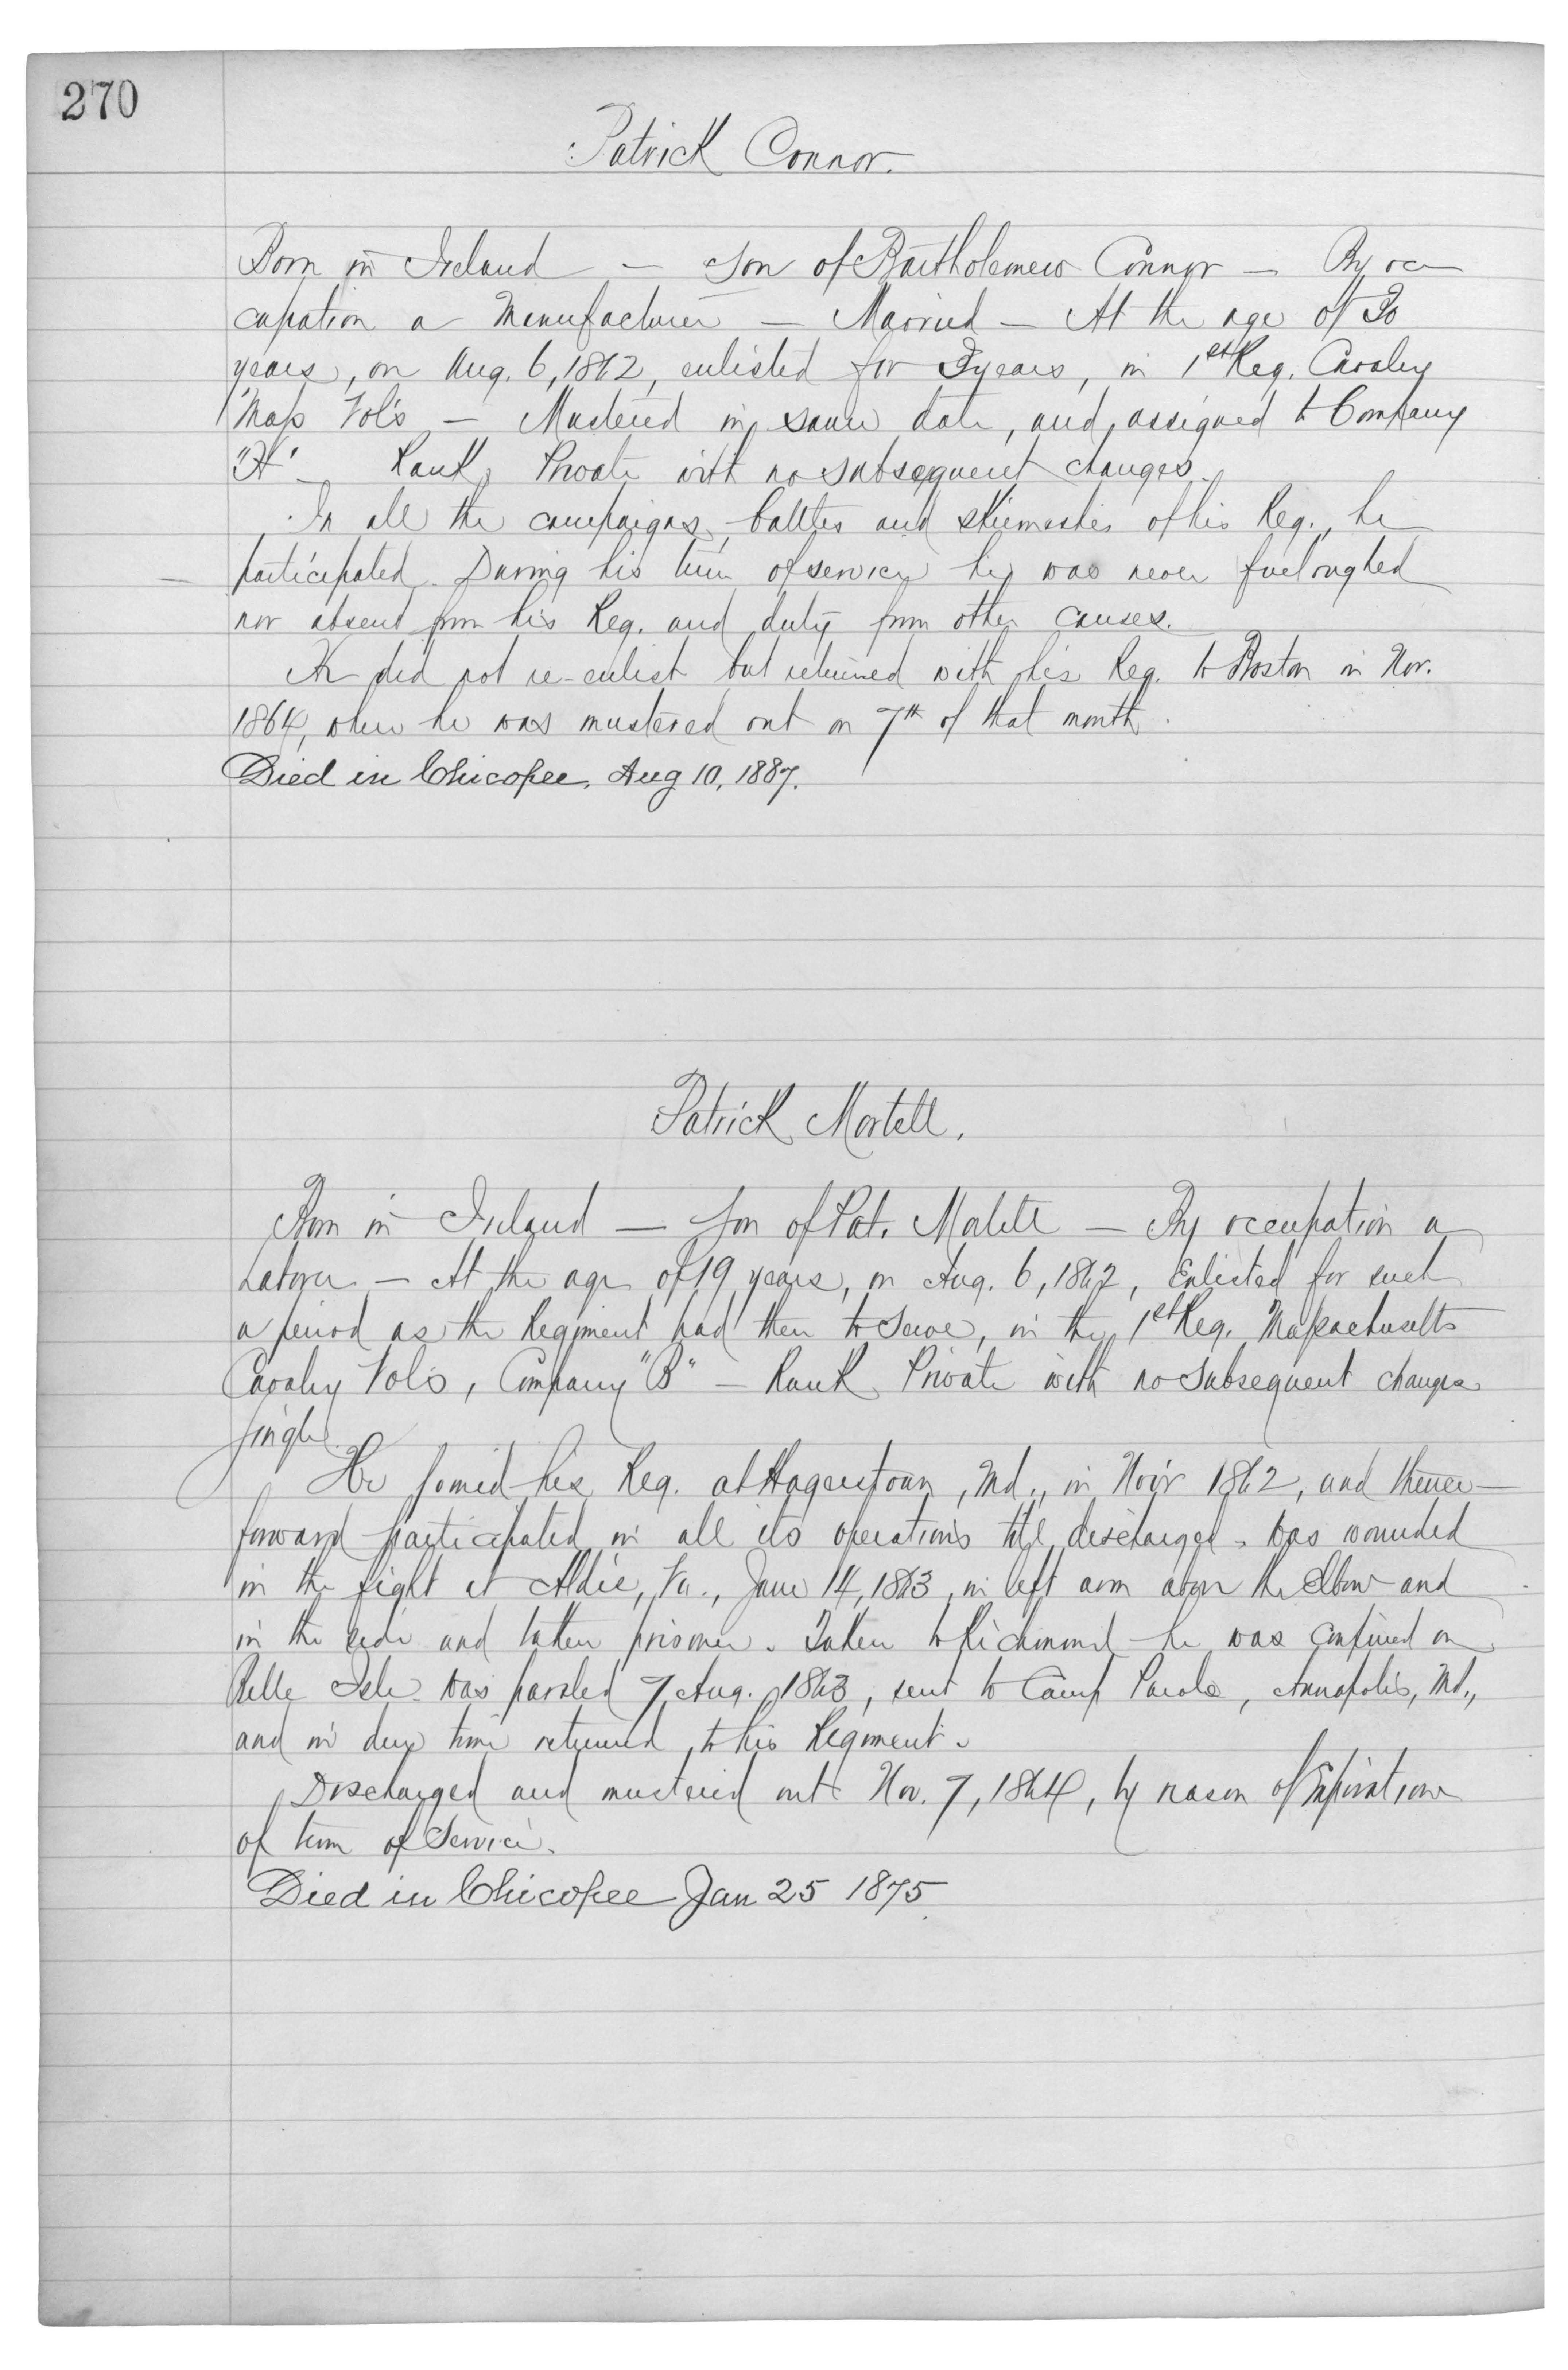 270
Patrick Connor.
Born in Ireland – Son of Bartholemew Connor – By oc
cupation a Manufacturer – Married – At the age of 30
years, on Aug. 6, 1862, enlisted for 3 years, in 1st Reg. Cavalry
Mass Vols – Mustered in same date, and assigned to Company
"H" – Rank, Private with no subsequent changes.
In all the campaigns, battles and skirmishes of his Reg., he
participated. During his term of service he was never furloughed
nor absent from his Reg. and duty from other causes.
He did not re-enlist but returned with his Reg. to Boston in Nov.
1864, where he was mustered out on 7th of that month.
Died in Chicopee, Aug 10, 1887.
Patrick Mortell.
Born in Ireland – Son of Pat. Mortell – By occupation a
Laborer – At the age of 19 years, on Aug. 6, 1862, Enlisted for such
a period as the Regiment had then to serve, in the 1st Reg. Massachusetts
Cavalry Vols, Company "B" – Rank Private with no subsequent changes
Single.
He joined his Reg. at Hagerstown, Md., in Nov'r 1862, and thence–
forward participated in all its operations till discharged. Was wounded
in the fight at Aldie, Va., June 14, 1863, in left arm above the Elbow and
in the side and taken prisoner. Taken to Richmond he was confined on
Belle Isle. Was paroled 7, Aug. 1863, sent to Camp Parole, Annapolis, Md.,
and in due time returned to his Regiment.
Discharged and mustered out Nov. 7, 1864, by reason of Expiration
of term of Service.
Died in Chicopee Jan 25 1875